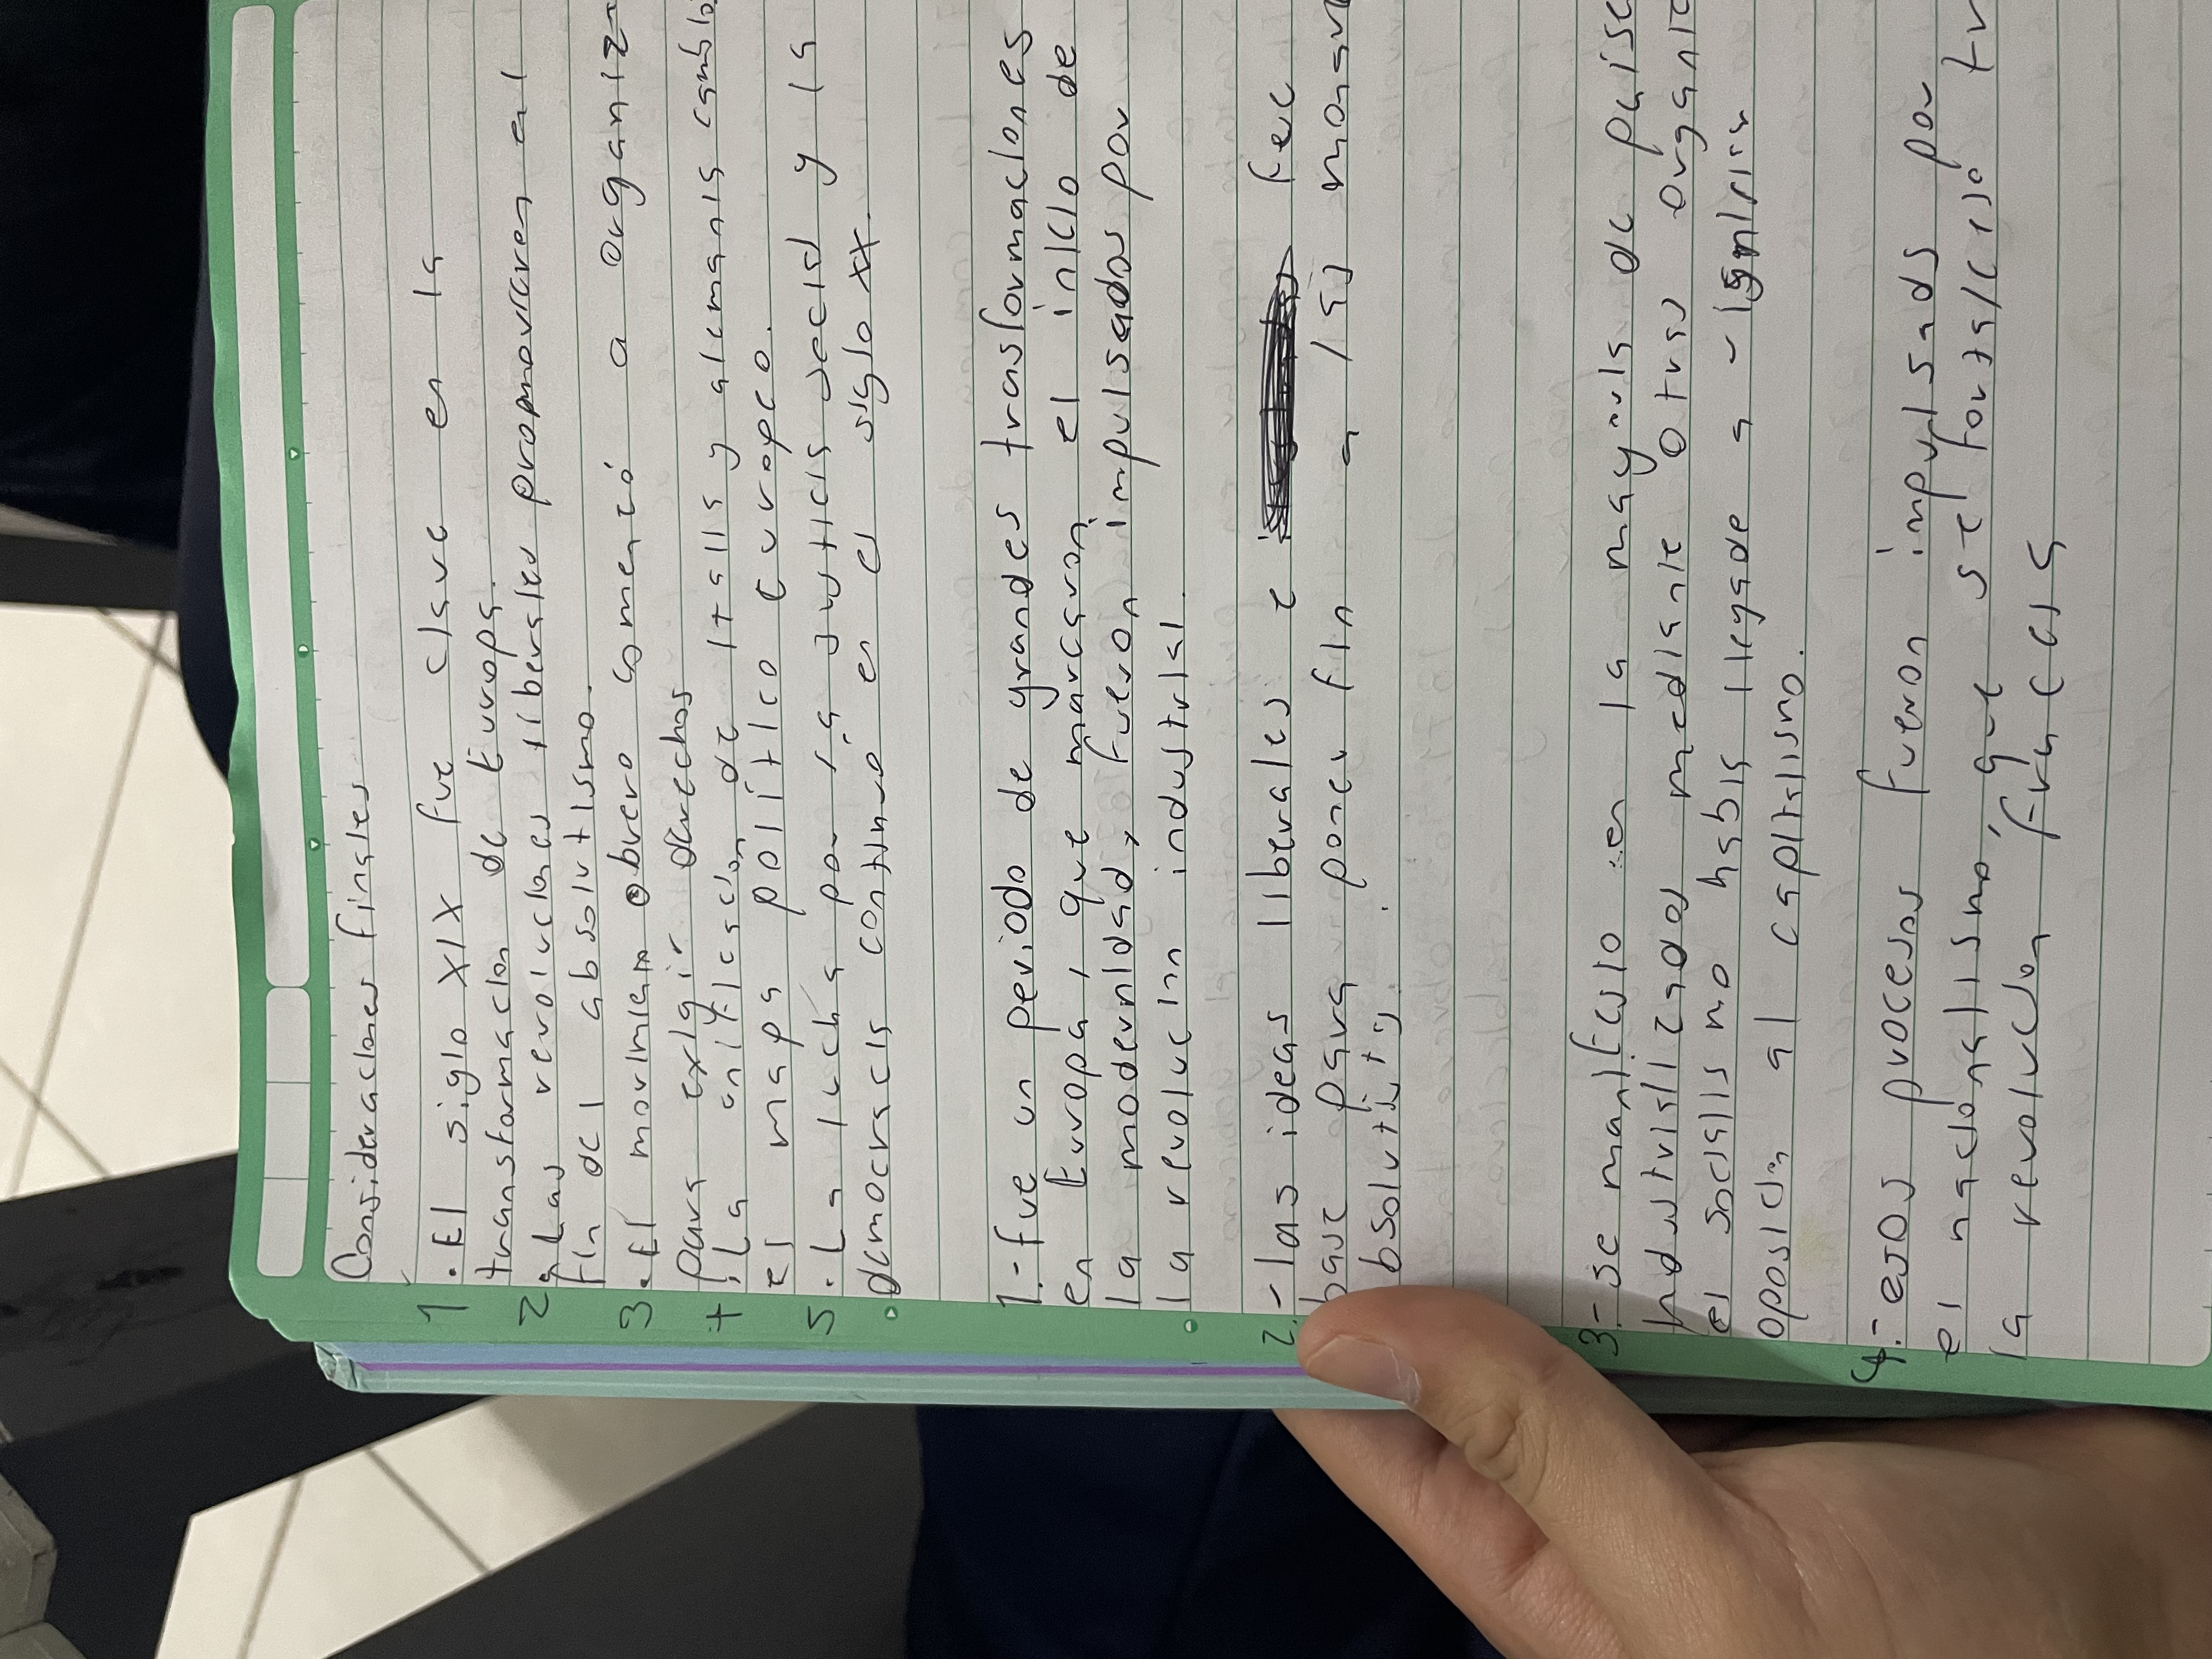 Consideraciones finales
1 . El siglo XIX fue clave en la
transformacion de Europa.
2 . Las revoluciones liberales promovieron el
fin del absolutismo.
3 . El movimiento obrero comenzó a organiz
para exigir derechos
4 . La unificacion de Italia y alemania cambio
el mapa politico Europeo.
5 . La lucha por la justicia social y la
democracia continuó en el siglo XX.
1.- fue un periodo de grandes trasformaciones
en Europa, que marcaron el inicio de
la modernidad, fueron impulsados por
la revolucinn industrial.
2.- las ideas liberales e fec
base para poner fin a las monar
bsolutis
3.- se manifesto en la mayoria de paise
industrialízados mediante otras organic
el socialis no habia llegado a
oposicin al capitalismo.
4.- esos procesos fueron impulsads por
el nacionalismo, que se fortalcio tr
la revolucion francesa